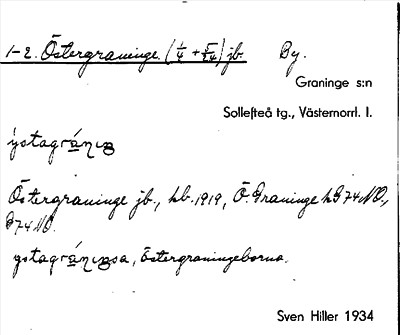 1-2. Östergraninge. (1/4 + 5/24) jb. By.
Graninge s:n
Sollefteå tg., Västernorrl. l.
ỳstagràniŋ
Östergraninge jb., hb. 1919, Ö. Graninge hB 74 NO.,
B 74 NO.
ystagràniŋsa, östergraningeborna.
Sven Hiller 1934